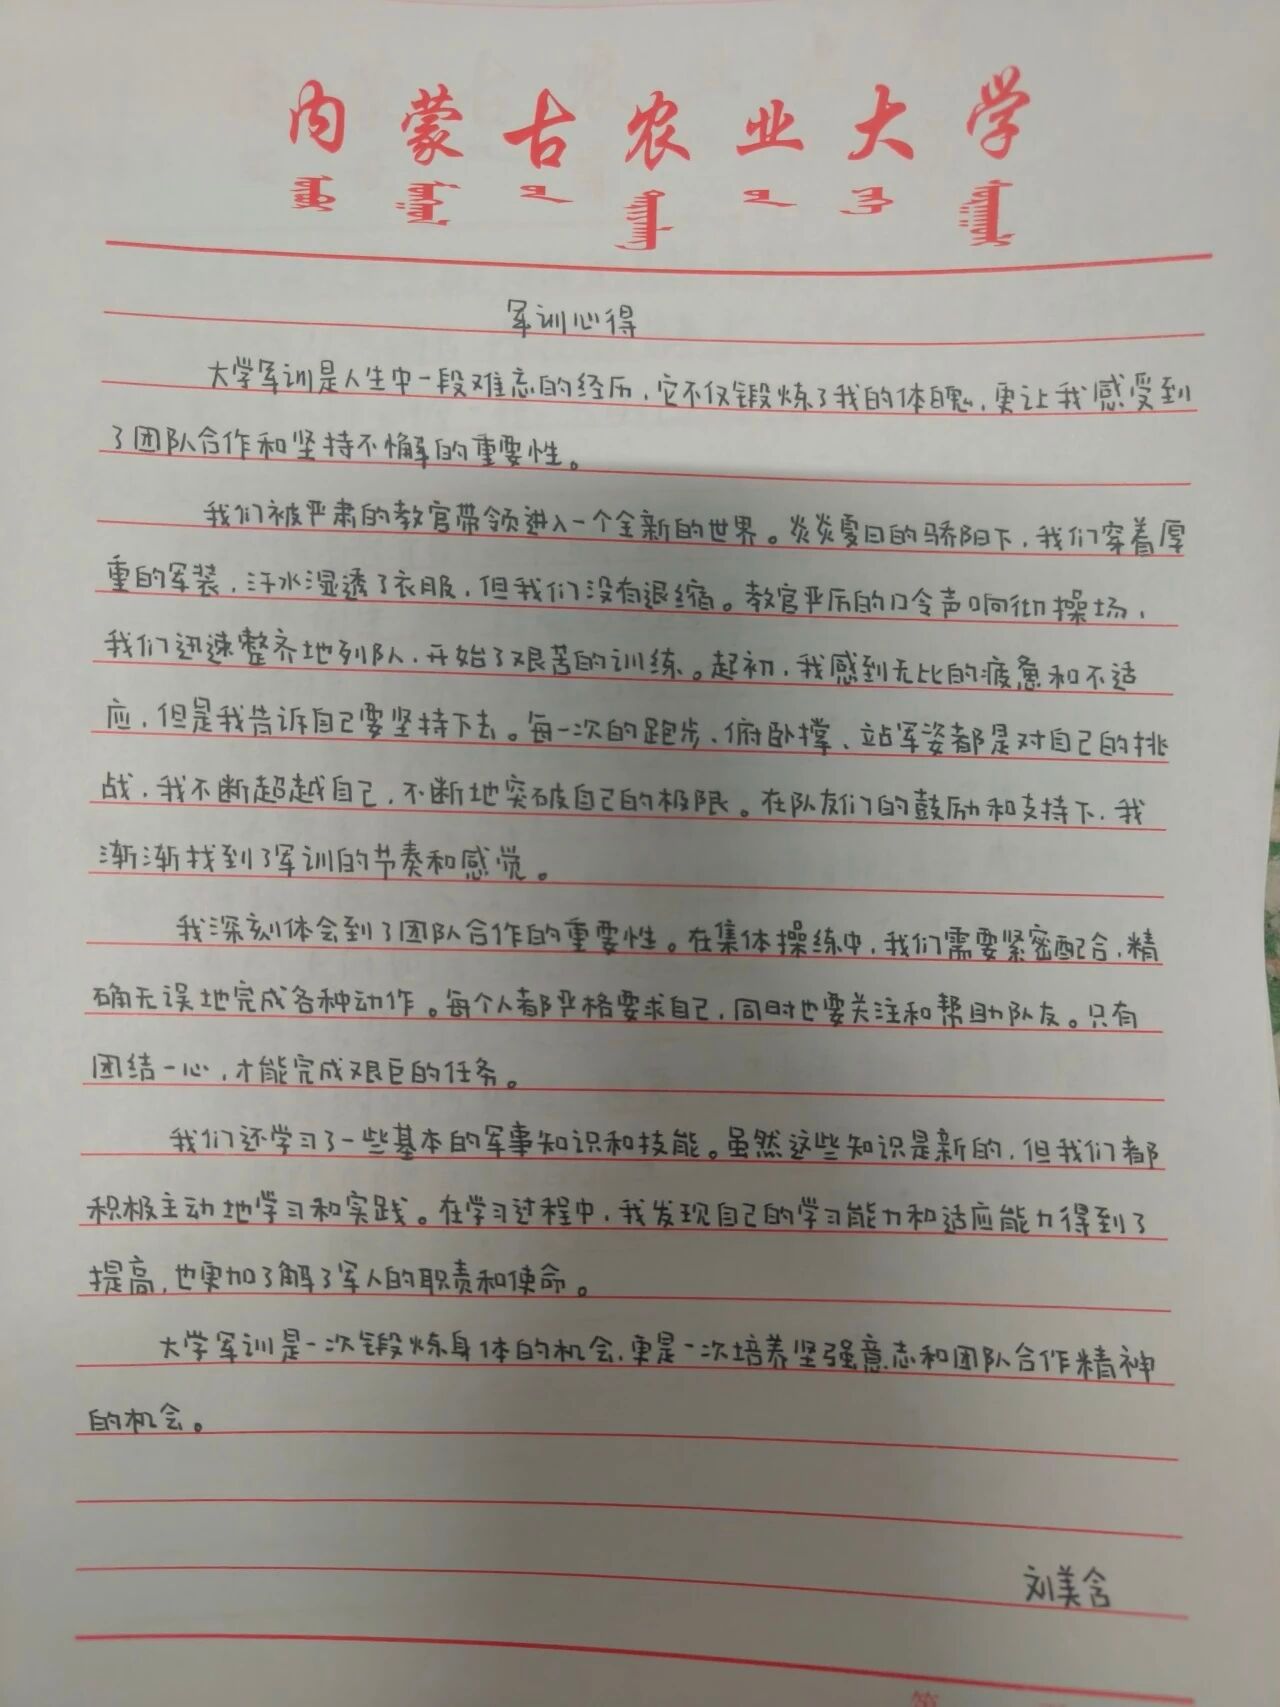 内蒙古农业大学
军训心得
大学军训是人生中一段难忘的经历，它不仅锻炼了我的体魄，更让我感受到
了团队合作和坚持不懈的重要性。
我们被严肃的教官带领进入一个全新的世界。炎炎夏日的骄阳下，我们穿着厚
重的军装，汗水湿透了衣服，但我们没有退缩。教官严厉的口令声响彻操场，
我们迅速整齐地列队，开始了艰苦的训练。起初，我感到无比的疲惫和不适
应，但是我告诉自己要坚持下去。每一次的跑步、俯卧撑、站军姿都是对自己的挑
战，我不断超越自己，不断地突破自己的极限。在队友们的鼓励和支持下，我
渐渐找到了军训的节奏和感觉。
我深刻体会到了团队合作的重要性。在集体操练中，我们需要紧密配合，精
确无误地完成各种动作。每个人都严格要求自己，同时也要关注和帮助队友。只有
团结一心，才能完成艰巨的任务。
我们还学习了一些基本的军事知识和技能。虽然这些知识是新的，但我们都
积极主动地学习和实践。在学习过程中，我发现自己的学习能力和适应能力得到了
提高，也更加了解了军人的职责和使命。
大学军训是一次锻炼身体的机会，更是一次培养坚强意志和团队合作精神
的机会。
刘美含